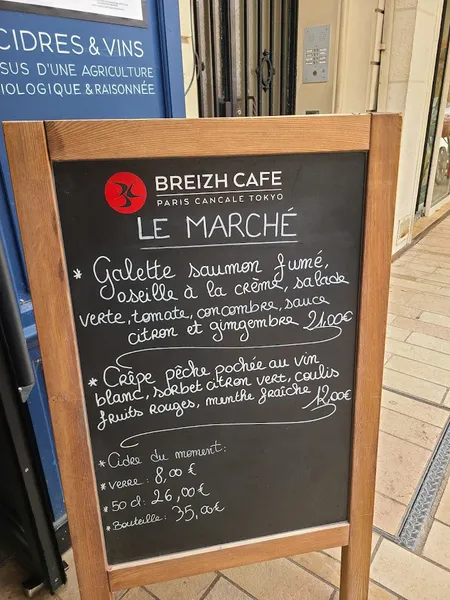 CIDRES & VINS
SUS D'UNE AGRICULTURE
IOLOGIQUE & RAISONNÉE
BREIZH CAFE
PARIS CANCALE TOKYO
LE MARCHÉ
* Galette saumon fumé,
oseille à la crème, salade
verte, tomate, concombre, sauce
citron et gingembre 21.00€
* Crêpe pêche pochée au vin
blanc, sorbet citron vert, coulis
fruits rouges, menthe fraîche 12,00€
* Cidre du moment:
* verre: 8,00 €
* 50 cl: 26,00€
* Bouteille: 35,00€